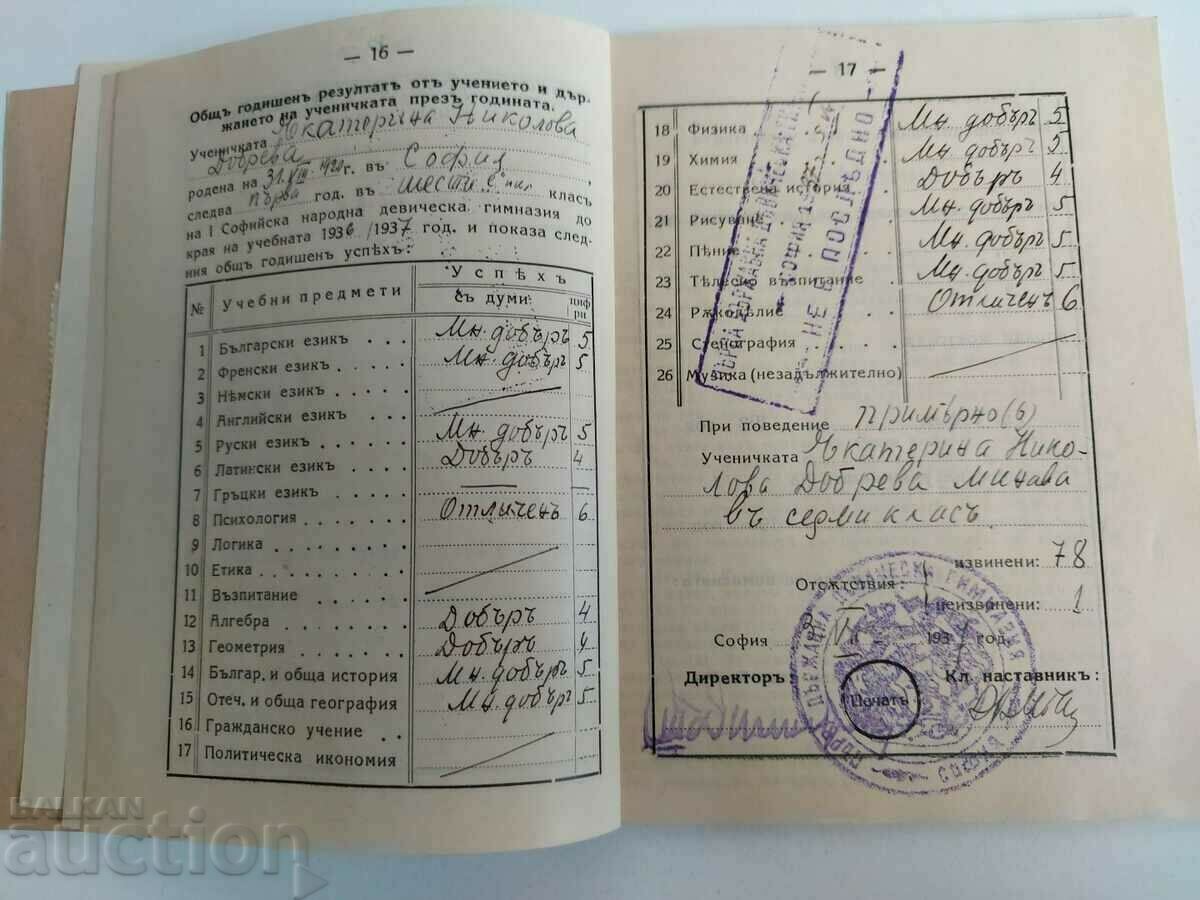 — 16 —
Общъ годишенъ резултатъ отъ учението и дър-
жането на ученичката презъ годината.
Ученичката Екатерина Николова
Добрева
родена на 31.VIII.1920 г. въ София,
следва първа год. въ шести класъ
на I Софийска народна девическа гимназия до
края на учебната 1936/1937 год. и показа след-
ния общъ годишенъ успѣхъ:
№ Учебни предмети Успѣхъ
съ думи циф ри
1 Български езикъ Мн. добъръ 5
2 Френски езикъ Мн. добъръ 5
3 Нѣмски езикъ
4 Английски езикъ
5 Руски езикъ Мн. добъръ 5
6 Латински езикъ Добъръ 4
7 Гръцки езикъ —
8 Психология Отличенъ 6
9 Логика
10 Етика
11 Възпитание
12 Алгебра Добъръ 4
13 Геометрия Добъръ 4
14 Българ, и обща история Мн. добъръ 5
15 Отеч. и обща география Мн. добъръ 5
16 Гражданско учение
17 Политическа икономия
— 17 —
18 Физика Мн. добъръ 5
19 Химия Мн. добъръ 5
20 Естествена история Добъръ 4
21 Рисуване Мн. добъръ 5
22 Пѣние Мн. добъръ 5
23 Тѣлесно възпитание Мн. добъръ 5
24 Рѫкодѣлие Отличенъ 6
25 Стенография
26 Музика (незадължително)
НЕ Е ПОСЛѢДНО
При поведение примѣрно (6)
Ученичката Екатерина Нико-
лова Добрева минава
въ седми класъ.
извинени: 78
Отсѫтствия:
неизвинени: 1
София 193 год.
Директоръ Кл. наставникъ:
Печатъ
ПЪРВА ДЪРЖАВНА ДЕВИЧЕСКА ГИМНАЗИЯ
СОФИЯ
BALKAN
auction